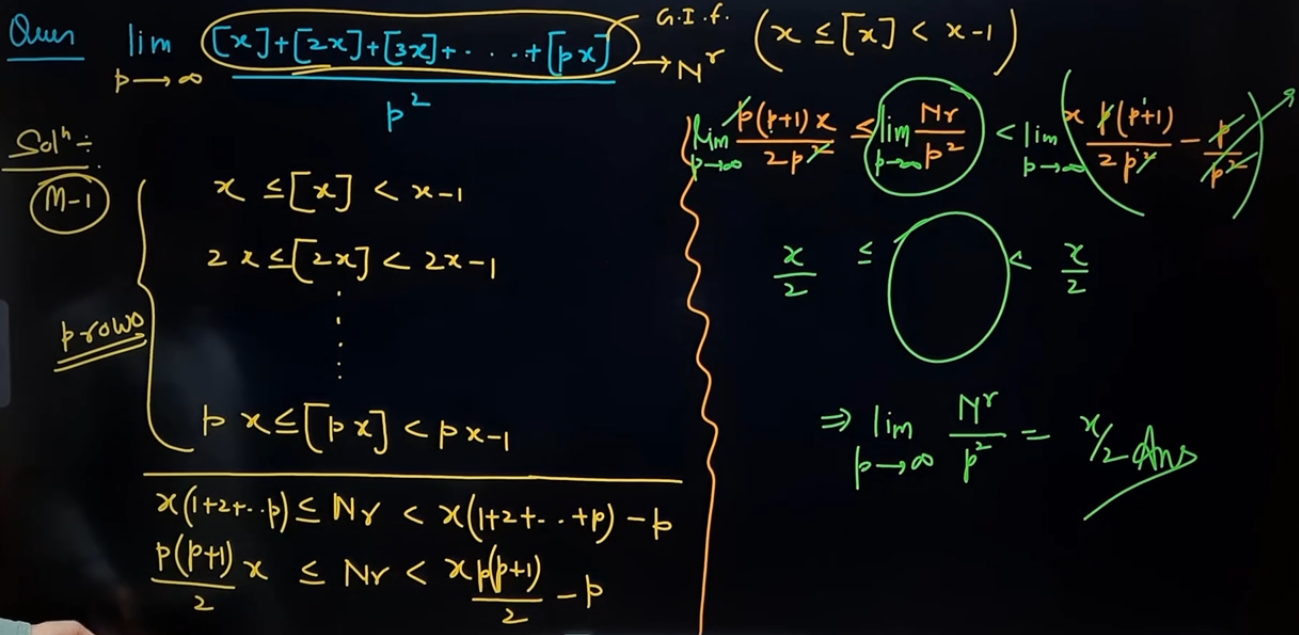 Ques lim p→∞ [x]+[2x]+[3x]+.....+[px] / p² → Nʳ
G.I.f. (x ≤ [x] < x-1)
Solⁿ :-
M-1
x ≤ [x] < x-1
2x ≤ [2x] < 2x-1
p rows
px ≤ [px] < px-1
x(1+2+..p) ≤ Nr < x(1+2+..+p) - p
p(p+1)/2 x ≤ Nr < x p(p+1)/2 - p
lim p→∞ p(p+1)x / 2p² ≤ lim p→∞ Nr/p² < lim p→∞ (x p(p+1) / 2p² - p/p²)
x/2 ≤ < x/2
⇒ lim p→∞ Nʳ/p² = x/2 Ans